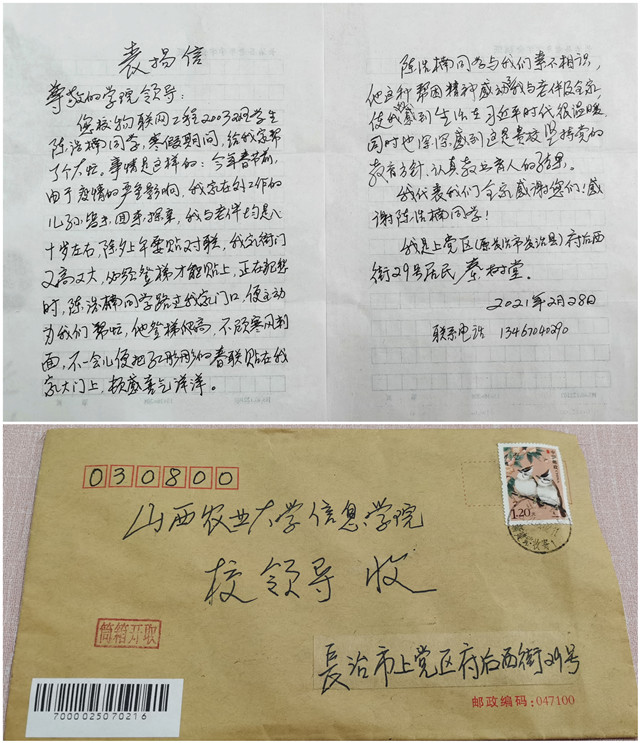 表扬信
尊敬的学院领导：
您校物联网工程2003班学生
陈浩楠同学，寒假期间，给我家帮
了个大忙。事情是这样的：今年春节前，
由于疫情的严重影响，我家在外工作的
儿孙暂未回来探亲，我与老伴均是八
十岁左右，除夕上午要贴对联，我家街门
又高又大，必须登梯才能贴上，正在犯愁
时，陈浩楠同学路过我家门口，便主动
为我们帮忙，他登梯爬高，不顾寒风刺
面，不一会儿便把红彤彤的春联贴在我
家大门上，顿感喜气洋洋。
陈浩楠同学与我们素不相识，
他这种帮困精神感动我与老伴及全家，
使我感到生活在习近平时代很温暖，
同时也深深感到这是贵校坚持党的
教育方针，认真教书育人的结果。
我代表我们全家感谢您们！感
谢陈浩楠同学！
我是上党区（原长治市长治县）府后西
街29号居民 秦树堂。
2021年2月28日
联系电话 13467040290
030800
山西农业大学信息学院
校领导收
1.20元
长治市上党区府后西街29号
邮政编码：047100
7000025070216